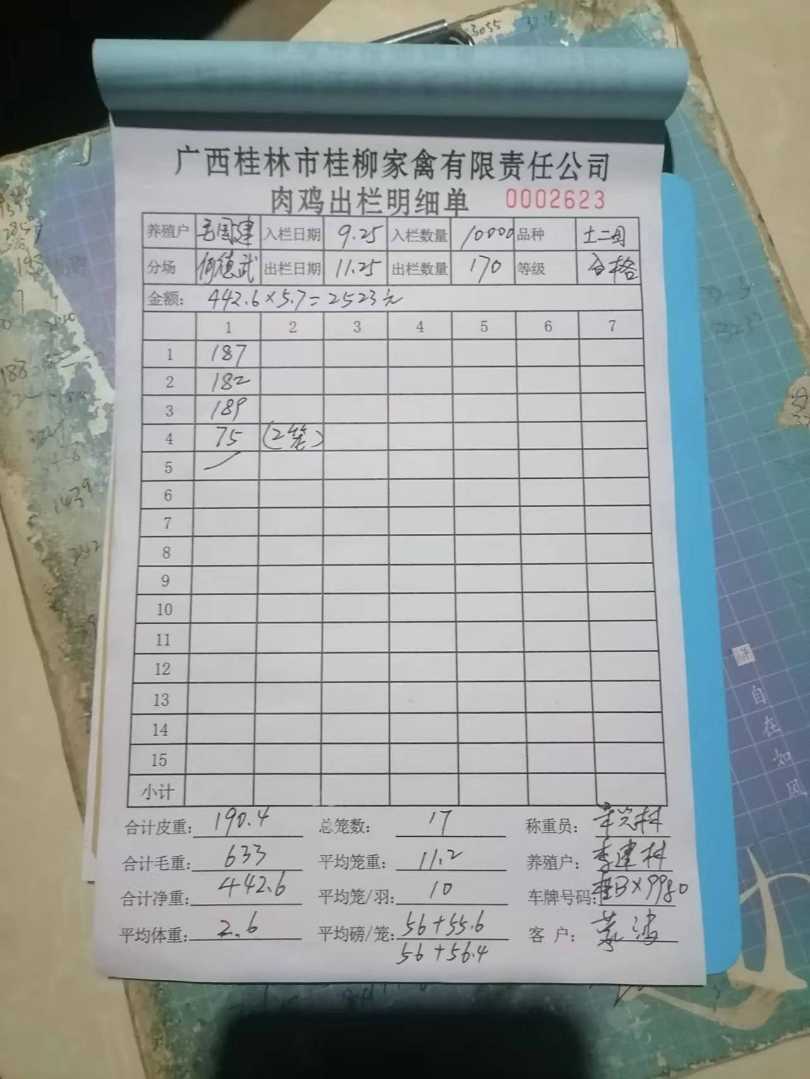 广西桂林市桂柳家禽有限责任公司
肉鸡出栏明细单 0002623
养殖户 国建 入栏日期 9.25 入栏数量 10000 品种 土二
分场 何德武 出栏日期 11.25 出栏数量 170 等级 合格
金额: 442.6×5.7=2523元
1 2 3 4 5 6 7
1 187
2 182
3 189
4 75 (2笼)
5
6
7
8
9
10
11
12
13
14
15
小计
合计皮重: 190.4 总笼数: 17 称重员:
合计毛重: 633 平均笼重: 11.2 养殖户: 李建科
合计净重: 442.6 平均笼/羽: 10 车牌号码: 桂B×9980
平均体重: 2.6 平均磅/笼: 56+55.6 客户:
56+56.4
自在如风